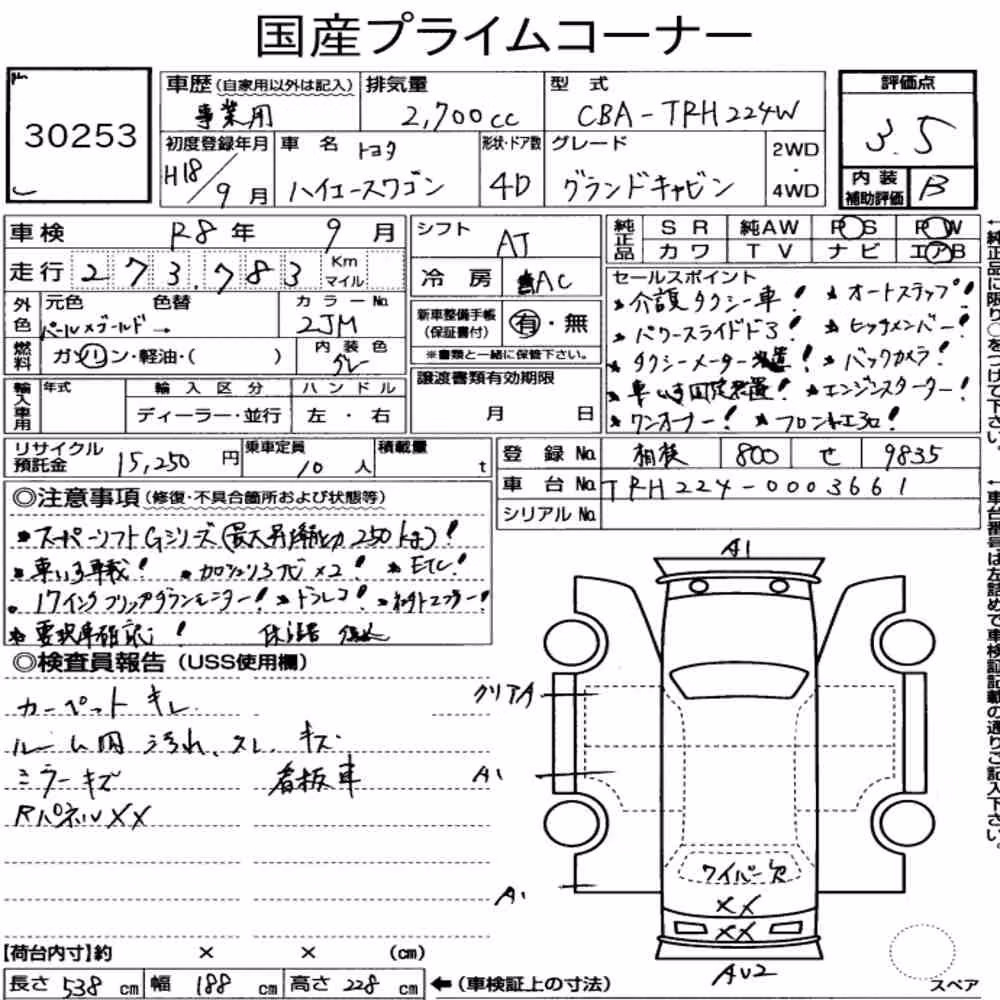 国産プライムコーナー
30253
車歴(自家用以外は記入)
事業用
排気量
2,700cc
型式
CBA-TRH224W
評価点
3.5
初度登録年月
H18/9月
車名
トヨタ
ハイエースワゴン
形状・ドア数
4D
グレード
グランドキャビン
2WD
・
4WD
内装
補助評価
B
車検 R8年 9月
走行 273,783
Km
マイル
シフト
AT
冷房
AC
純正品
SR 純AW PS PW
カワ TV ナビ エアB
外色
元色 色替
パールメゴールド→
カラーNo.
2JM
燃料
ガソリン・軽油・( )
内装色
グレー
新車整備手帳
(保証書付)
有・無
※書類と一緒に保管下さい。
セールスポイント
介護タクシー車! オートステップ!
パワースライドドア! ヒッチメンバー!
タクシーメーター装置! バックカメラ!
車いす固定装置! エンジンスターター!
ワンオーナー!
輸入車用
年式
輸入区分
ディーラー・並行
ハンドル
左・右
譲渡書類有効期限
月 日
リサイクル
預託金
15,250円
乗車定員
10人
積載量
t
登録No. 相模 800 せ 9835
車台No. TRH224-0003661
シリアルNo.
◎注意事項(修復・不具合箇所および状態等)
スーパーシフトGシリーズ(最大昇降能力250kg)!
車いす2車載! ナビ×2! ETC!
17インチフリップダウンモニター! ドラレコ!
要現車確認!
◎検査員報告(USS使用欄)
カーペットキレ
ルーム内汚れ、スレ、キズ
ミラーキズ 看板車
RパネルXX
A1
クリアA
A1
A1
ワイパー欠
XX
XX
AU2
スペア
【荷台内寸】約 × × (cm)
長さ 538 cm 幅 188 cm 高さ 228 cm ←(車検証上の寸法)
←純正品に限り○をつけて下さい。
←車台番号は左詰めで車検証記載の通りご記入下さい。